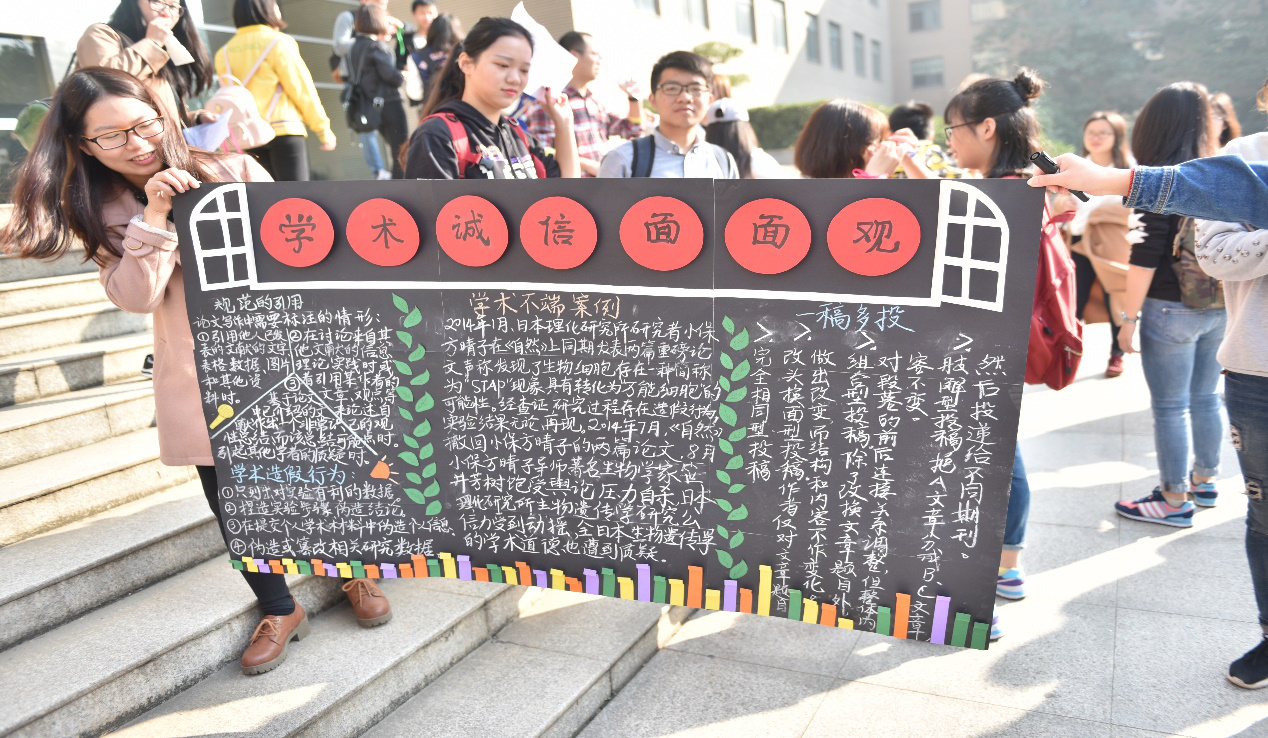 学术诚信面面观
规范的引用
论文写作中需要标注的情形：
①引用他人已发
表的文献的文字
表格数据、图片
和其他资
料时。
②在讨论来自其
他文献的信息
理论实践时或
③看引用某作者的
④伪造或篡改相关研究数据
学术造假行为
①只列出对实验有利的数据
②捏造实验步骤伪造结论
③在提交个人学术材料中伪造个人信息
学术不端案例
2014年1月、日本理化研究所研究者小保
方晴子在《自然》上同期发表两篇重磅论
文声称发现了生物细胞存在一种简称
为"STAP"现象具有转化为多能细胞的
可能性。经查证研究过程存在造假行为，
实验结果无法再现。2014年7月《自然》
撤回小保方晴子的两篇论文。8月
小保方晴子导师著名生物学家笹
井芳树饱受舆论压力自杀。日本
理化研究所生物遗传学研究公
信力受到动摇，全日本生物遗传学
的学术道德也遭到质疑。
一稿多投
>完全相同型投稿
>改头换面型投稿，作者仅对文章题目
做出改变而结构和内容不作变化。
>组合型投稿，除了改换文章题目外，
对段落的前后连接关系调整，但整体内
容不变。
>肢解型投稿，把A文章分成B、C文章，
然后投递给不同期刊。